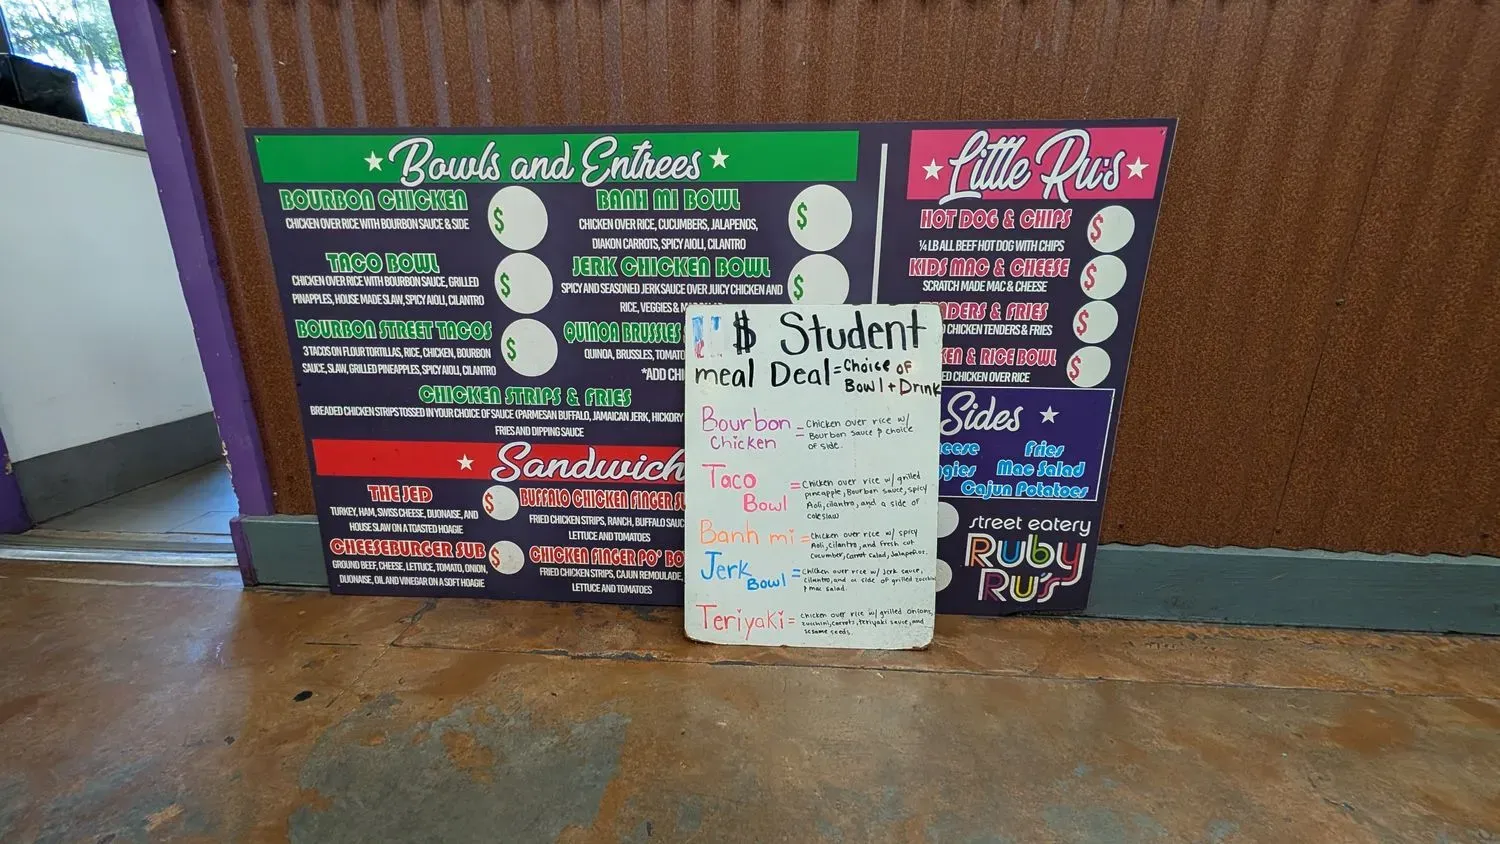 Bowls and Entrees
BOURBON CHICKEN
$
CHICKEN OVER RICE WITH BOURBON SAUCE & SIDE
TACO BOWL
$
CHICKEN OVER RICE WITH BOURBON SAUCE, GRILLED
PINAPPLES, HOUSE MADE SLAW, SPICY AIOLI, CILANTRO
BOURBON STREET TACOS
$
3 TACOS ON FLOUR TORTILLAS, RICE, CHICKEN, BOURBON
SAUCE, SLAW, GRILLED PINEAPPLES, SPICY AIOLI, CILANTRO
BANH MI BOWL
$
CHICKEN OVER RICE, CUCUMBERS, JALAPENOS,
DIAKON CARROTS, SPICY AIOLI, CILANTRO
JERK CHICKEN BOWL
$
SPICY AND SEASONED JERK SAUCE OVER JUICY CHICKEN AND
RICE, VEGGIES &
QUINOA BRUSSLES
QUINOA, BRUSSLES,
*ADD
CHICKEN STRIPS & FRIES
BREADED CHICKEN STRIPS TOSSED IN YOUR CHOICE OF SAUCE (PARMESAN BUFFALO, JAMAICAN JERK, HICKORY
FRIES AND DIPPING SAUCE
Sandwich
THE JED
$
TURKEY, HAM, SWISS CHEESE, DIJONAISE, AND
HOUSE SLAW ON A TOASTED HOAGIE
CHEESEBURGER SUB
$
GROUND BEEF, CHEESE, LETTUCE, TOMATO, ONION,
DIJONAISE, OIL AND VINEGAR ON A SOFT HOAGIE
BUFFALO CHICKEN FINGER
FRIED CHICKEN STRIPS, RANCH, BUFFALO
LETTUCE AND TOMATOES
CHICKEN FINGER PO'
FRIED CHICKEN STRIPS, CAJUN REMOULADE,
LETTUCE AND TOMATOES
Little Ru's
HOT DOG & CHIPS
$
¼ LB ALL BEEF HOT DOG WITH CHIPS
KIDS MAC & CHEESE
$
SCRATCH MADE MAC & CHEESE
& FRIES
$
CHICKEN TENDERS & FRIES
& RICE BOWL
$
CHICKEN OVER RICE
Sides
Fries
Mac Salad
Cajun Potatoes
street eatery
Ruby
Ru's
$ Student
meal Deal = Choice of
Bowl + Drink
Bourbon
Chicken
= Chicken over rice w/
Bourbon sauce & choice
of side.
Taco
Bowl
= Chicken over rice w/ grilled
pineapple, Bourbon sauce, spicy
Aoli, cilantro, and a side of
coleslaw
Banh mi
= Chicken over rice w/ spicy
Aoli, cilantro, and fresh cut
cucumber, carrot salad, Jalapeños.
Jerk
Bowl
= Chicken over rice w/ Jerk sauce,
cilantro, and a side of grilled zucchini
& mac salad.
Teriyaki
= Chicken over rice w/ grilled onions,
zucchini, carrots, teriyaki sauce, and
sesame seeds.